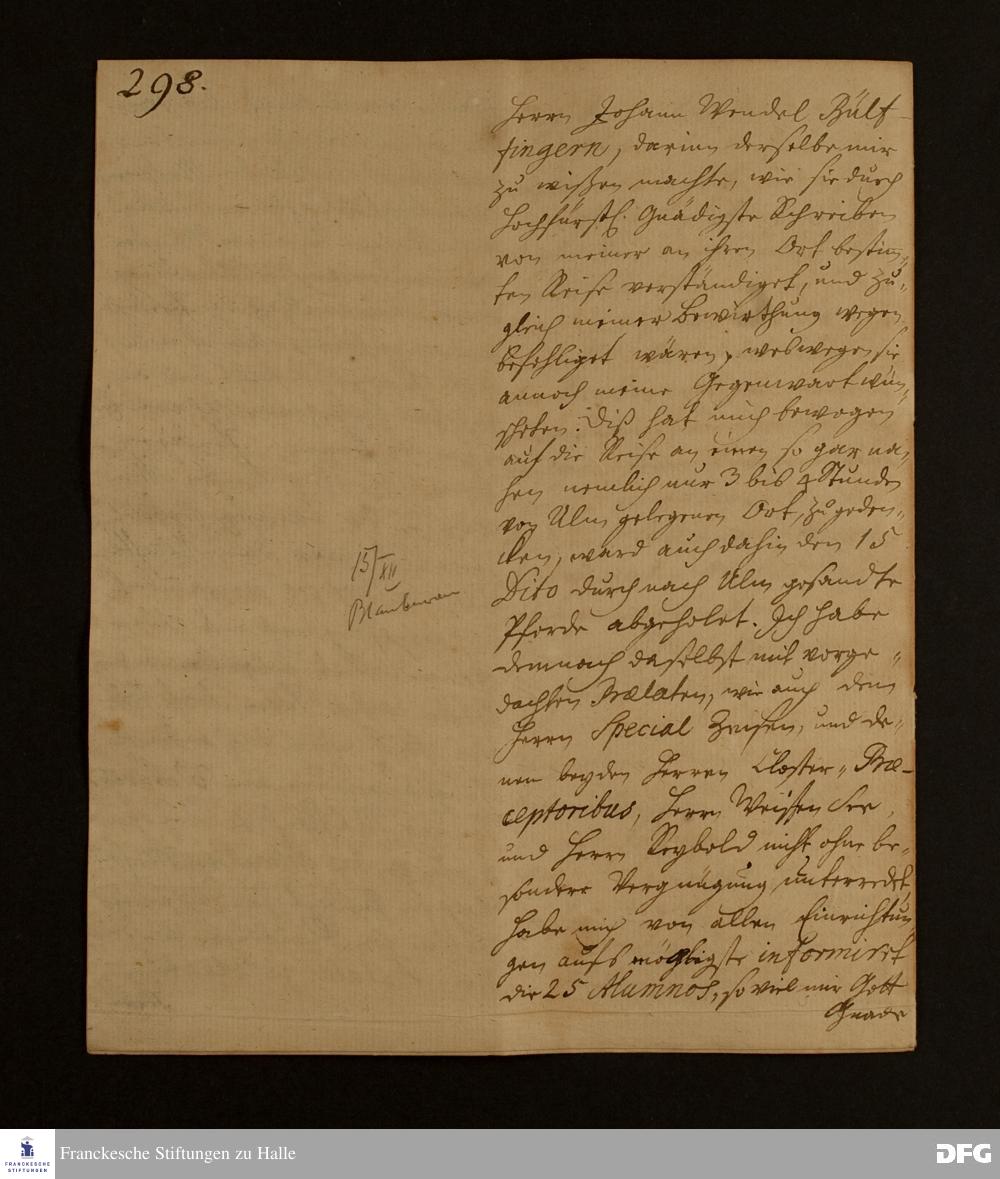 298.
Herrn Johann Wendel Bülf-
fingern, darinn derselbe mir
zu wißen machte, wie sie durch
Hochfürstl. Gnädigste Schreiben
von meiner an ihren Ort bestim„
ten Reise verständiget, und zu„
gleich meiner bewirthung wegen
befehliget wären, weswegen sie
annoch meine Gegenwart wün„
scheten. Diß hat mich bewogen
auf die Reise an einen so gar na„
hen nemlich nur 3 bis 4 Stunden
von Ulm gelegenen Ort, zu geden„
cken, ward auch dahin den 15
Dito durch nach Ulm gesandte
Pferde abgeholet. Ich habe
demnach daselbst mit vorge„
dachten Prælaten, wie auch dem
Herrn Special Zeisen, und de„
nen beyden Herren Closter„ Præ-
ceptoribus, Herrn Weissensee,
und Herrn Seybold nicht ohne be„
sondere Vergnügung unterredet,
habe mich von allen Einrichtun„
gen aufs möglichste informiret
die 25 Alumnos, so viel mir Gott
Gnade
15/XII
Blaubeuren
FRANCKESCHE
STIFTUNGEN
Franckesche Stiftungen zu Halle
DFG